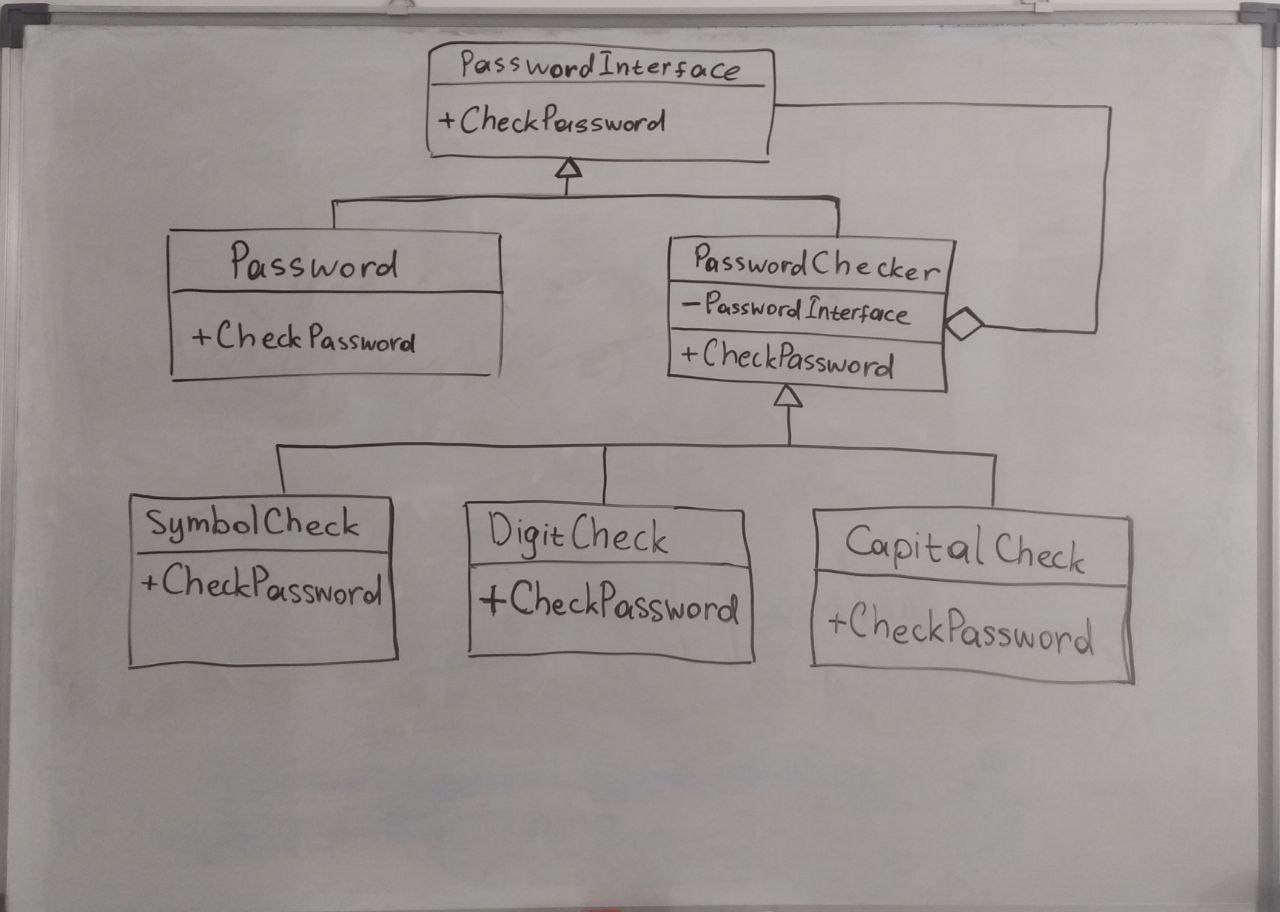 PasswordInterface
+CheckPassword
Password
+CheckPassword
PasswordChecker
-PasswordInterface
+CheckPassword
SymbolCheck
+CheckPassword
DigitCheck
+CheckPassword
CapitalCheck
+CheckPassword